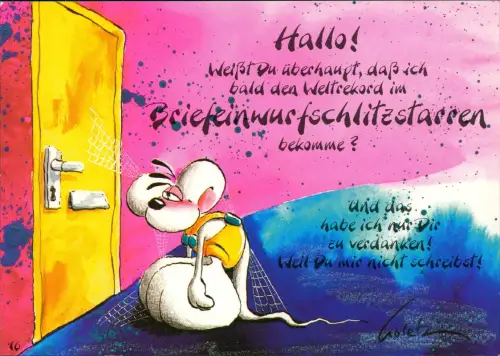 Hallo!
Weißt Du überhaupt, daß ich
bald den Weltrekord im
Briefeinwurfschlitzstarren
bekomme?
Und das
habe ich nur Dir
zu verdanken!
Weil Du mir nicht schreibst!